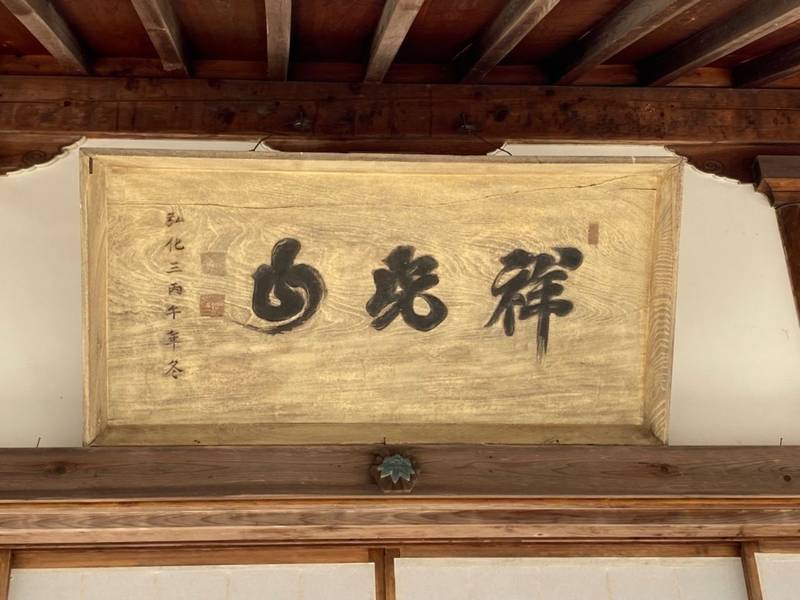 祥光山
弘化三丙午年冬